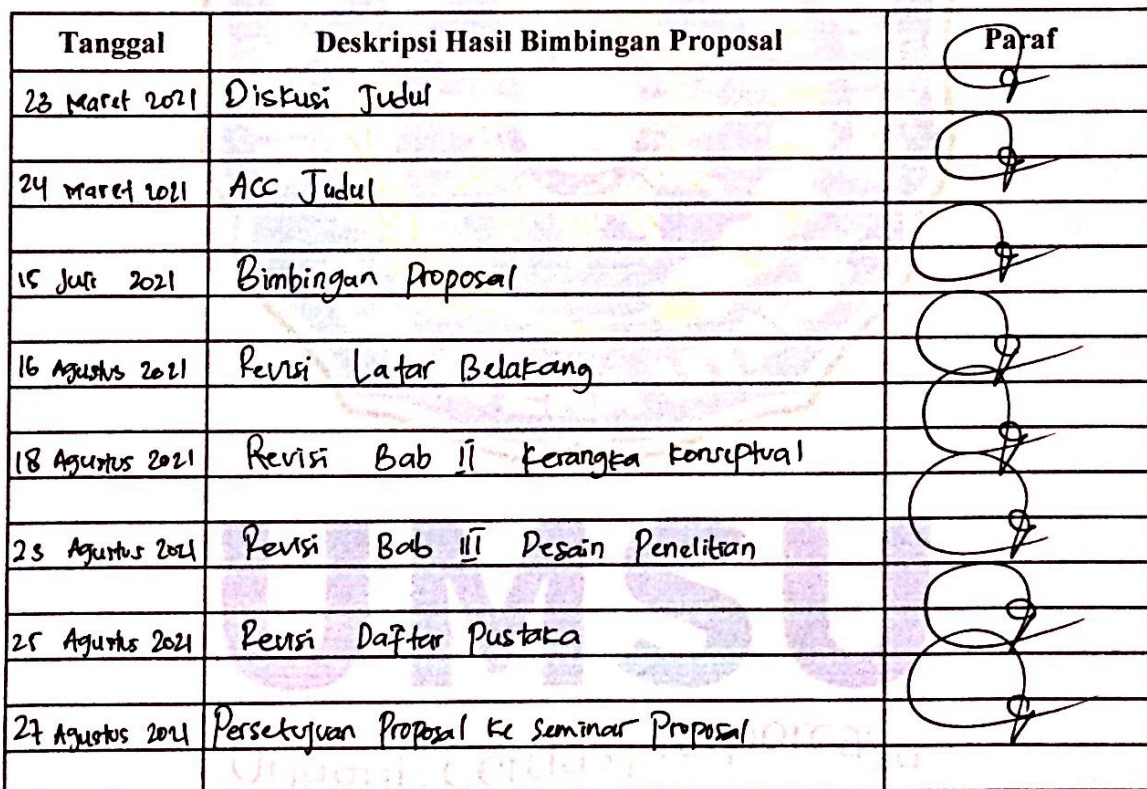 Tanggal Deskripsi Hasil Bimbingan Proposal Paraf
23 Maret 2021 Diskusi Judul
24 Maret 2021 ACC Judul
15 Juli 2021 Bimbingan Proposal
16 Agustus 2021 Revisi Latar Belakang
18 Agustus 2021 Revisi Bab II Kerangka Konseptual
23 Agustus 2021 Revisi Bab III Desain Penelitian
25 Agustus 2021 Revisi Daftar Pustaka
27 Agustus 2021 Persetujuan Proposal ke Seminar Proposal
UMSU